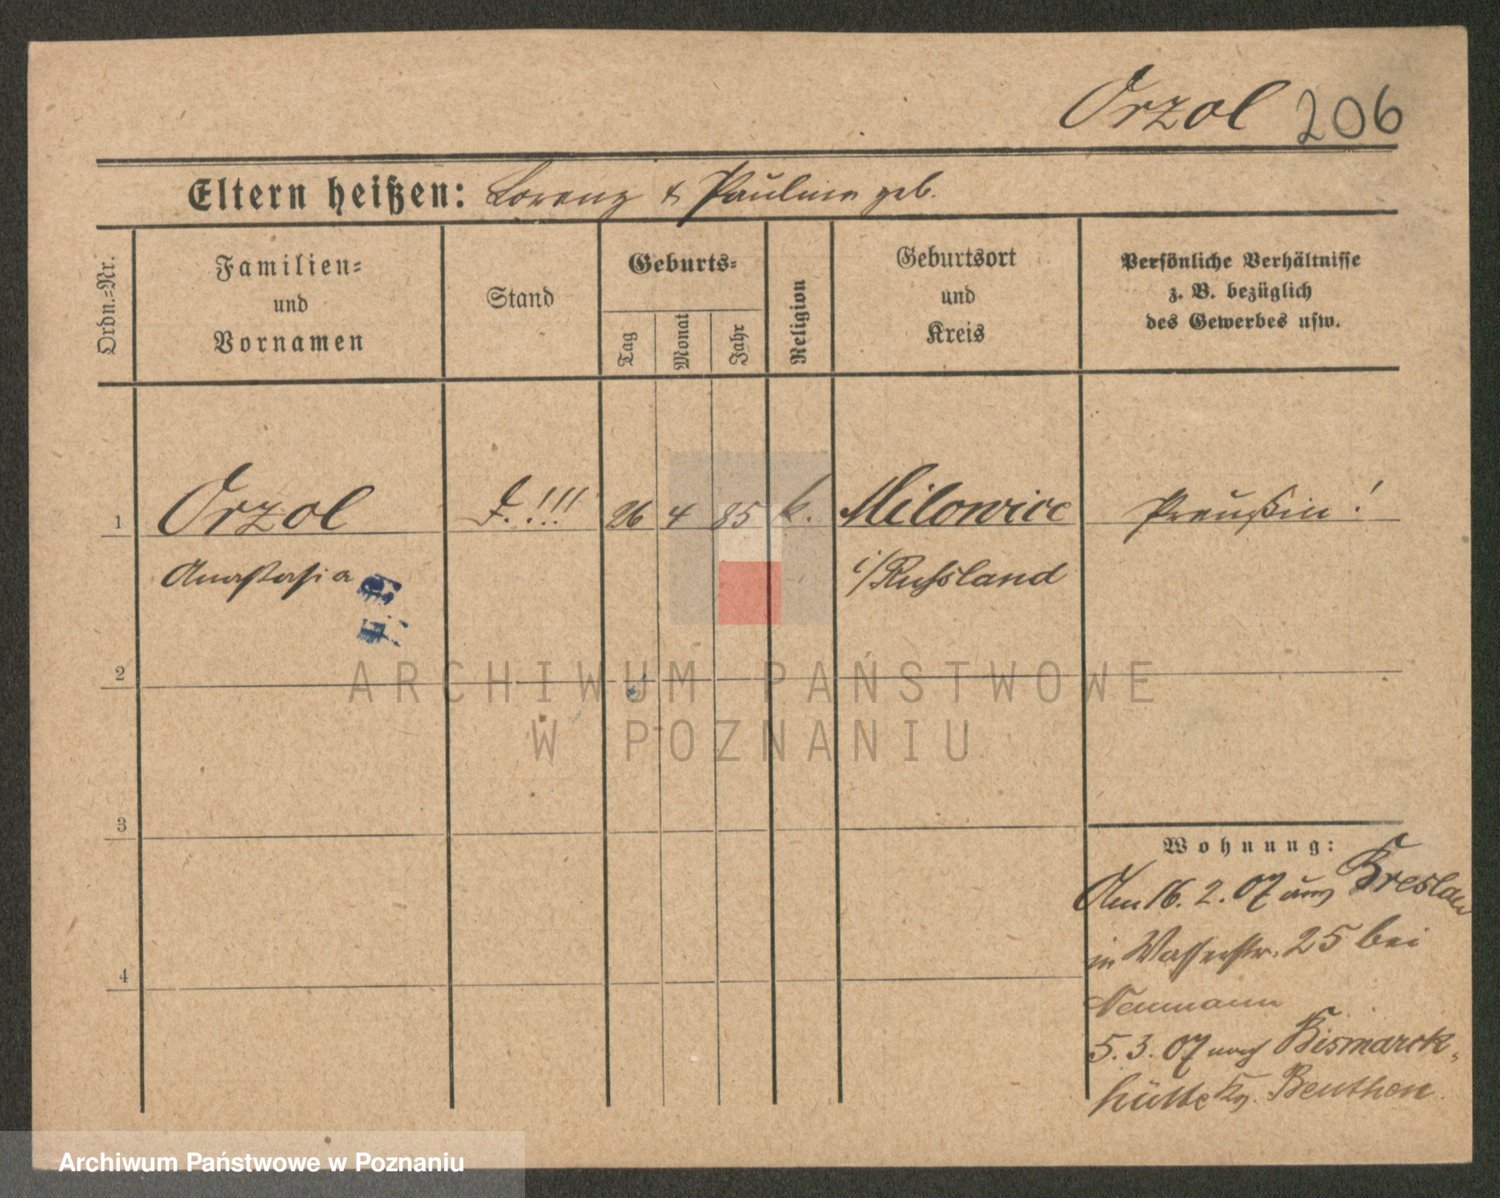 Orzol 206
Eltern heißen: Lorenz & Paulina geb.
Ordn.-Nr.
Familien-
und
Vornamen
Stand
Geburts-
Tag
Monat
Jahr
Religion
Geburtsort
und
Kreis
Persönliche Verhältnisse
z. B. bezüglich
des Gewerbes usw.
1 Orzol !!! 26 4 85 k. Milowice Preußin!
Anastasia i/Russland
2
ARCHIWUM PAŃSTWOWE
W POZNANIU
3
Wohnung:
Am 16. 2. 07 aus Breslau
in Wasserstr. 25 bei
4
Neumann
5. 3. 07 nach Bismarck-
hütte Kr. Beuthen.
Archiwum Państwowe w Poznaniu